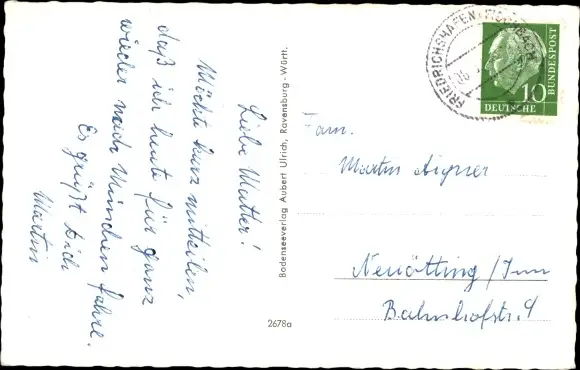 Liebe Mutter!
Möchte kurz mitteilen,
daß ich heute für ganz
wieder nach München fahre.
Es grüßt Dich
Martin
Bodenseeverlag Aubert Ulrich, Ravensburg-Württ.
2678a
FRIEDRICHSHAFEN
10
DEUTSCHE
BUNDESPOST
Fam.
Martin Aigner
Neuötting/Inn
Bahnhofstr. 9